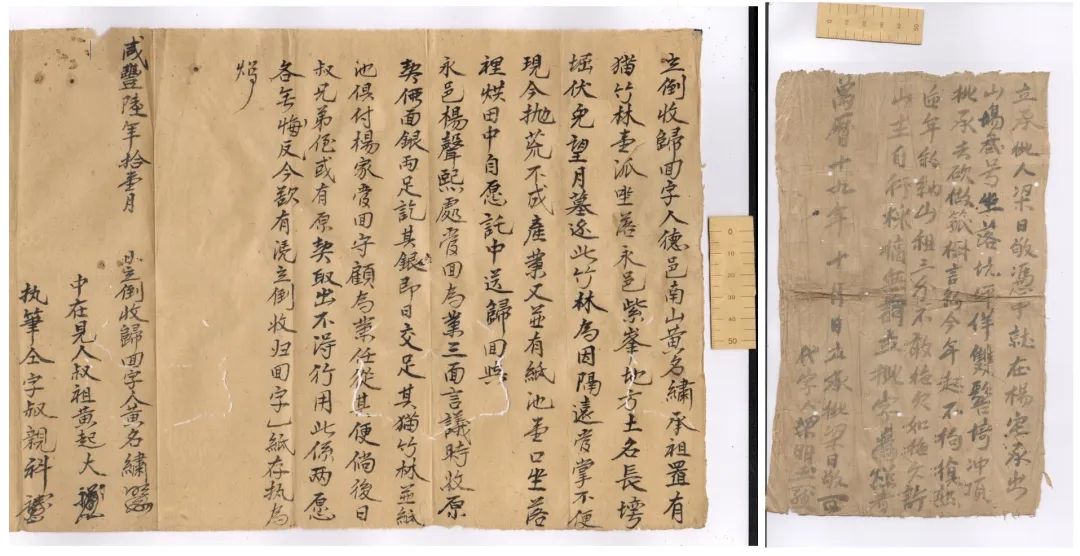 立倒收歸回字人德邑南山黃名繡承祖置有
猫竹林壹派坐落永邑紫峯地方土名長垮
堀伏兎望月墓邊此竹林為因隔遠管掌不便
現今抛荒不成產業又並有紙池壹口坐落
裡烘田中自愿託中送歸回與
永邑楊聲熙處管回為業三面言議時收原
契價面銀兩足訖其銀即日交足其猫竹林並紙
池俱付楊家管回守顧為業任從其便倘後日
叔兄弟侄或有原契取出不得行用此係兩愿
各無悔反今欲有憑立倒收归回字乚紙存执為
炤
咸豐陸年拾壹月 日立倒收歸回字人黃名繡
中在見人叔祖黃起大
执筆仝字叔親科
立承批人梁日敬憑中就在楊宅承出
山塲貳号坐落坑坪伴雙髻埼冲頂
批承去砍做菰樹言約今年起不拘
逓年納山租三分不敢拖欠如拖欠
山主自行
萬曆十九年十月日立承批梁日敬
代字人梁明玉